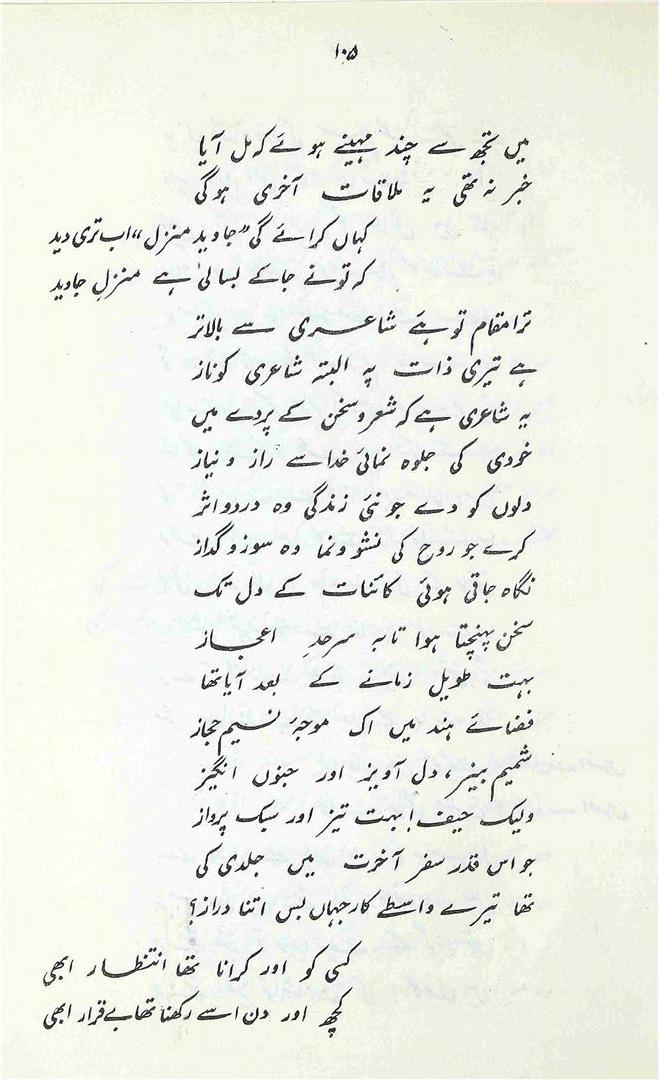 ۱۰۵
میں تجھ سے چند مہینے ہوئے کہ مل آیا
خبر نہ تھی یہ ملاقات آخری ہوگی
کہاں کرائے گی "جاوید منزل" اب تری دید
کہ تو نے جا کے بسائی ہے منزلِ جاوید
ترا مقام تو ہے شاعری سے بالاتر
ہے تیری ذات پہ البتہ شاعری کو ناز
یہ شاعری ہے کہ شعر و سخن کے پردے میں
خودی کی جلوہ نمائی خدا سے راز و نیاز
دلوں کو دے جو نئی زندگی وہ درد و اثر
کرے جو روح کی نشو و نما وہ سوز و گداز
نگاہ جاتی ہوئی کائنات کے دل تک
سخن پہنچتا ہوا تا بہ سرحدِ اعجاز
بہت طویل زمانے کے بعد آیا تھا
فضائے ہند میں اک موجۂ نسیم حجاز
شمیم بیز، دل آویز اور جنوں انگیز
ولیک حیف! بہت تیز اور سبک پرواز
جو اس قدر سفر آخرت میں جلدی کی
تھا تیرے واسطے کار جہاں بس اتنا دراز؟
کسی کو اور کرانا تھا انتظار ابھی
کچھ اور دن اسے رکھنا تھا بے قرار ابھی